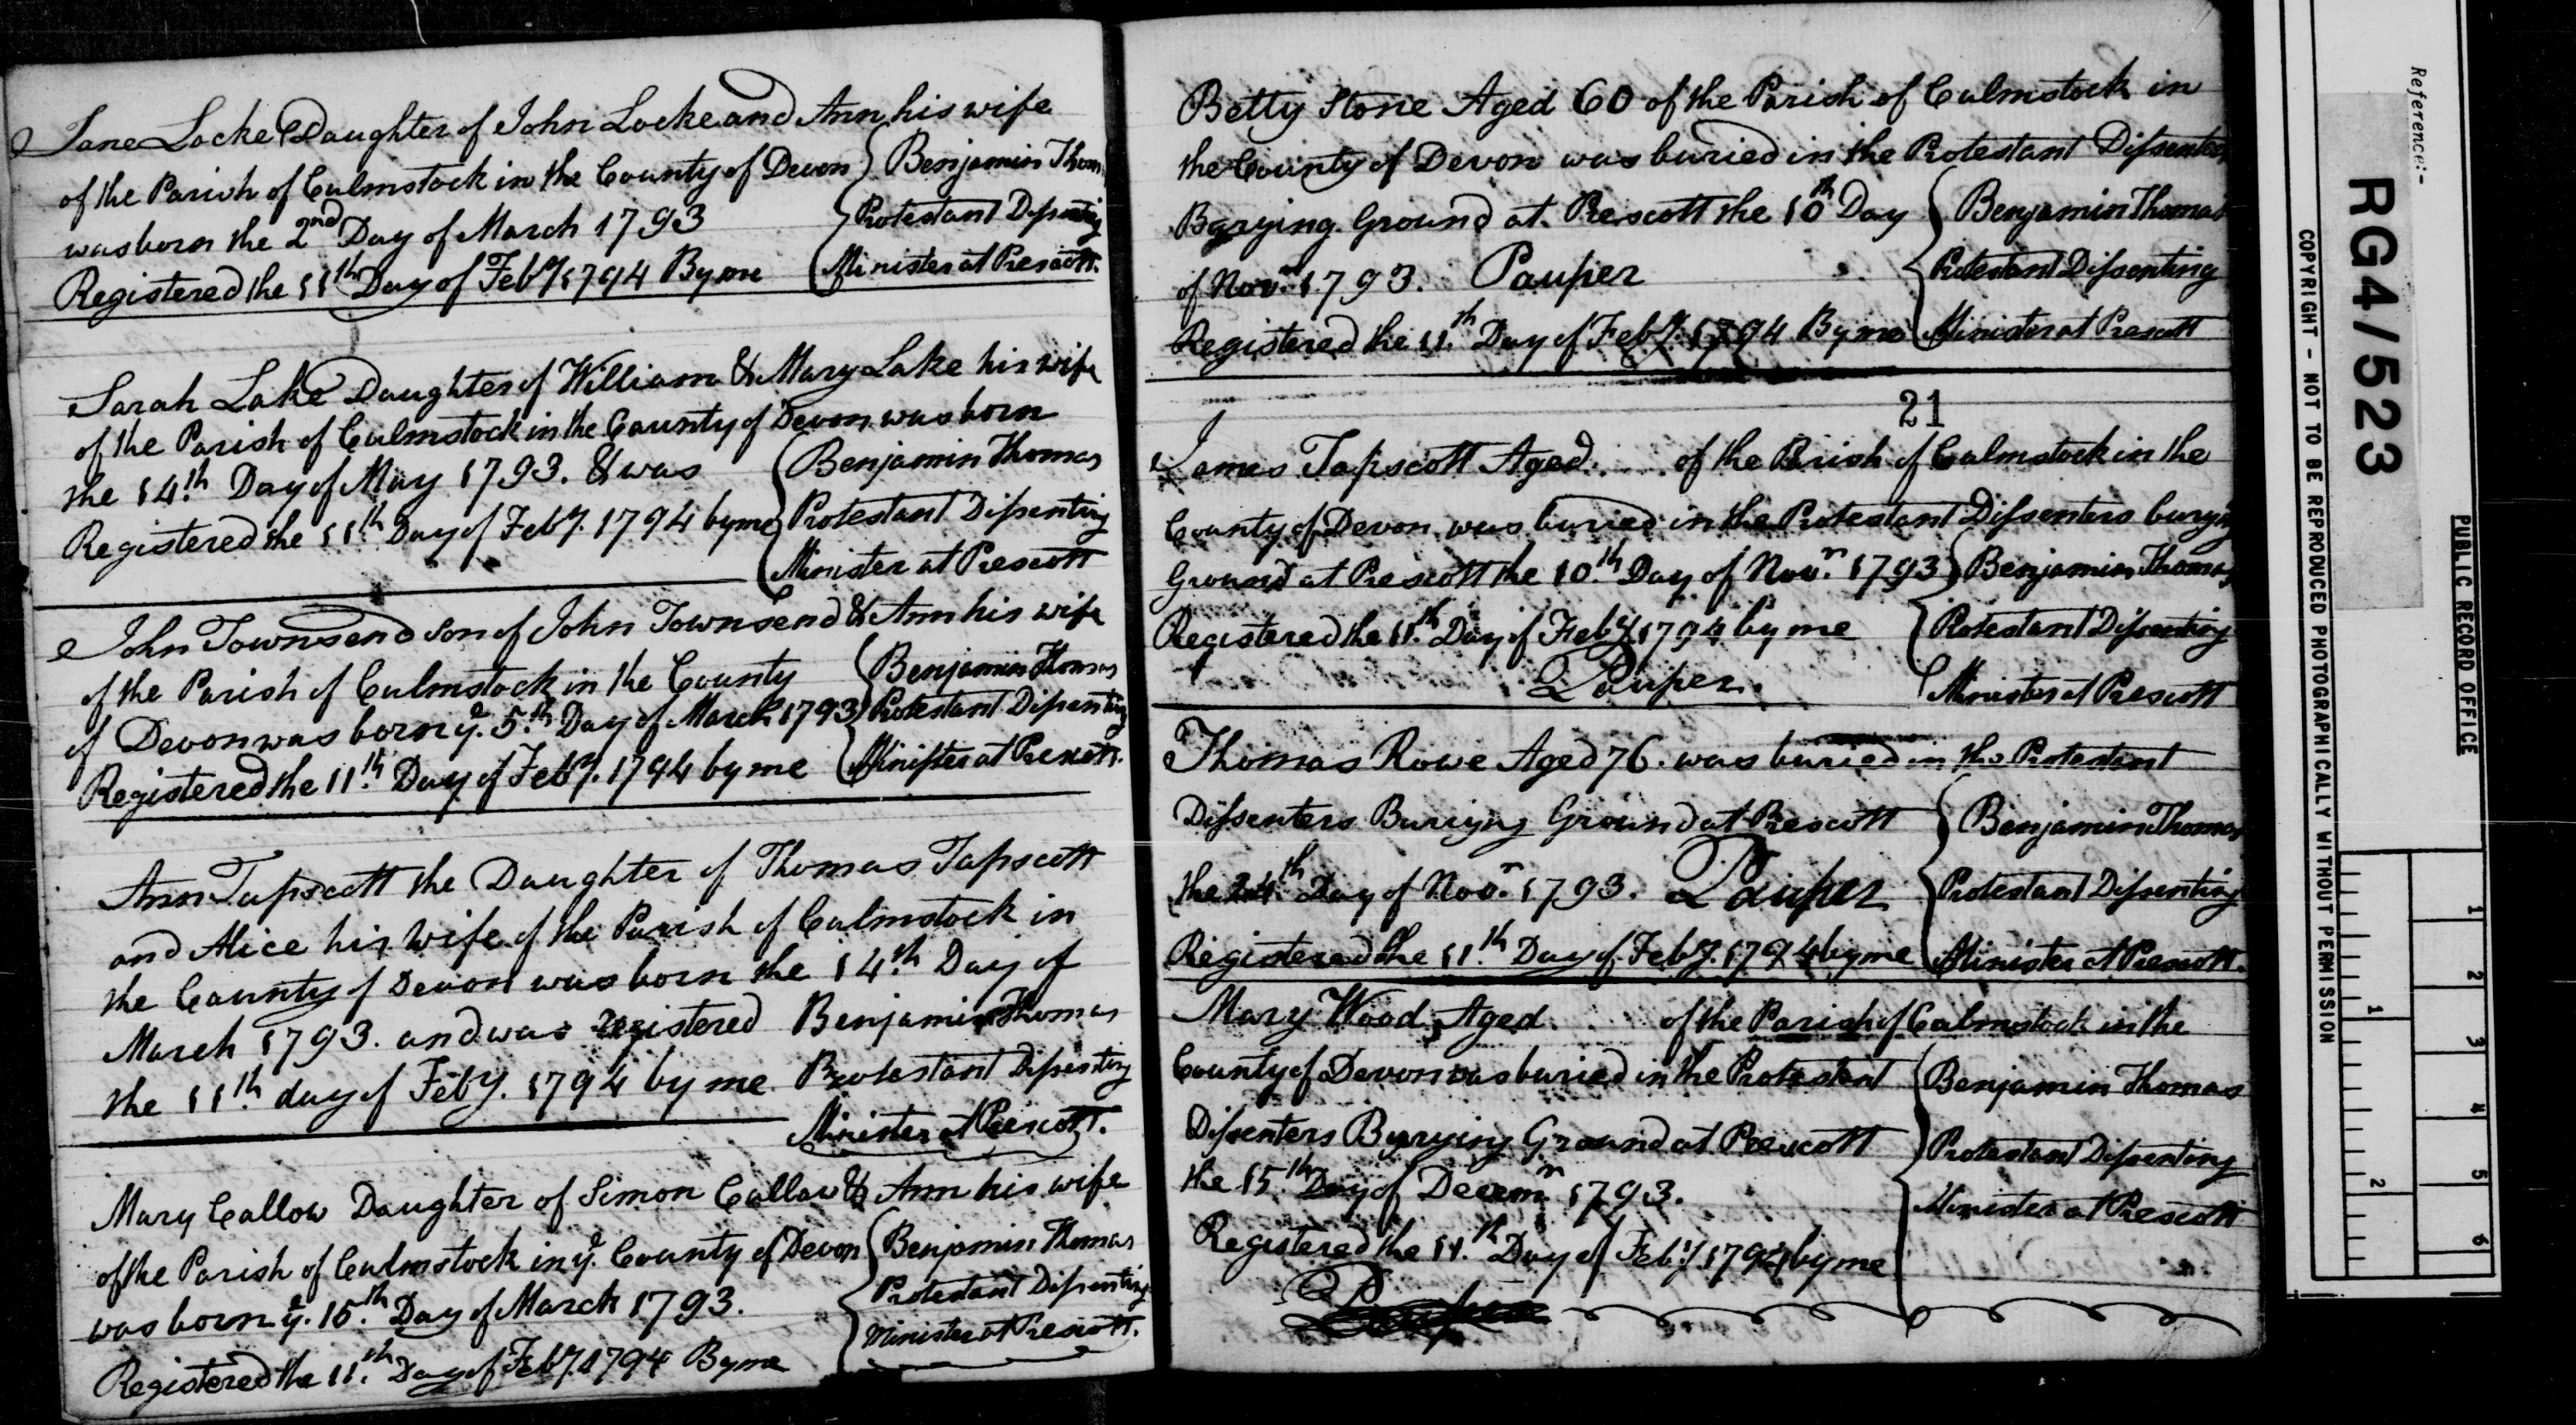 Jane Locke Daughter of John Locke and Ann his wife
of the Parish of Culmstock in the County of Devon Benjamin Thom
was born the 2nd Day of March 1793 Protestant Dissenting
Registered the 11th Day of Feby 1794 By me Minister at Prescott.
Sarah Lake Daughter of William & Mary Lake his wife
of the Parish of Culmstock in the County of Devon was born
the 14th Day of May 1793. & was Benjamin Thomas
Registered the 11th Day of Feby. 1794 by me Protestant Dissenting
Minister at Prescott
John Townsend son of John Townsend & Ann his wife
of the Parish of Culmstock in the County Benjamin Thomas
of Devon was born ye. 5th Day of March 1793 Protestant Dissenting
Registered the 11th Day of Feby. 1794 by me Minister at Prescott.
Ann Tapscott the Daughter of Thomas Tapscott
and Alice his Wife of the Parish of Culmstock in
the County of Devon was born the 14th Day of
March 1793. and was registered Benjamin Thomas
the 11th day of Feby. 1794 by me Protestant Dissenting
Minister at Prescott.
Mary Callow Daughter of Simon Callow & Ann his wife
of the Parish of Culmstock in ye. County of Devon Benjamin Thomas
was born ye. 15th Day of March 1793. Protestant Dissenting
Registered the 11th Day of Feby. 1794 By me Minister at Prescott.
Betty Stone Aged 60 of the Parish of Culmstock in
the County of Devon was buried in the Protestant Dissenters
Burying Ground at Prescott the 10th Day Benjamin Thomas
of Novr. 1793. Pauper Protestant Dissenting
Registered the 11th Day of Feby. 1794 By me Minister at Prescott
21
James Tapscott Aged .... of the Parish of Culmstock in the
County of Devon was buried in the Protestant Dissenters burying
Ground at Prescott the 10th Day of Novr. 1793 Benjamin Thomas
Registered the 11th Day of Feby 1794 by me Protestant Dissenting
Pauper. Minister at Prescott
Thomas Rowe Aged 76. was buried in the Protestant
Dissenters Burying Ground at Prescott Benjamin Thomas
the 24th Day of Novr. 1793. Pauper Protestant Dissenting
Registered the 11th Day of Feby. 1794 by me Minister at Prescott.
Mary Wood Aged .... of the Parish of Culmstock in the
County of Devon was buried in the Protestant Benjamin Thomas
Dissenters Burying Ground at Prescott Protestant Dissenting
the 15th Day of Decemr 1793. Minister at Prescott
Registered the 11th Day of Feby 1794 by me
Pauper
Reference:-
RG4/523
PUBLIC RECORD OFFICE
COPYRIGHT - NOT TO BE REPRODUCED PHOTOGRAPHICALLY WITHOUT PERMISSION
1
2
1
2
3
4
5
6